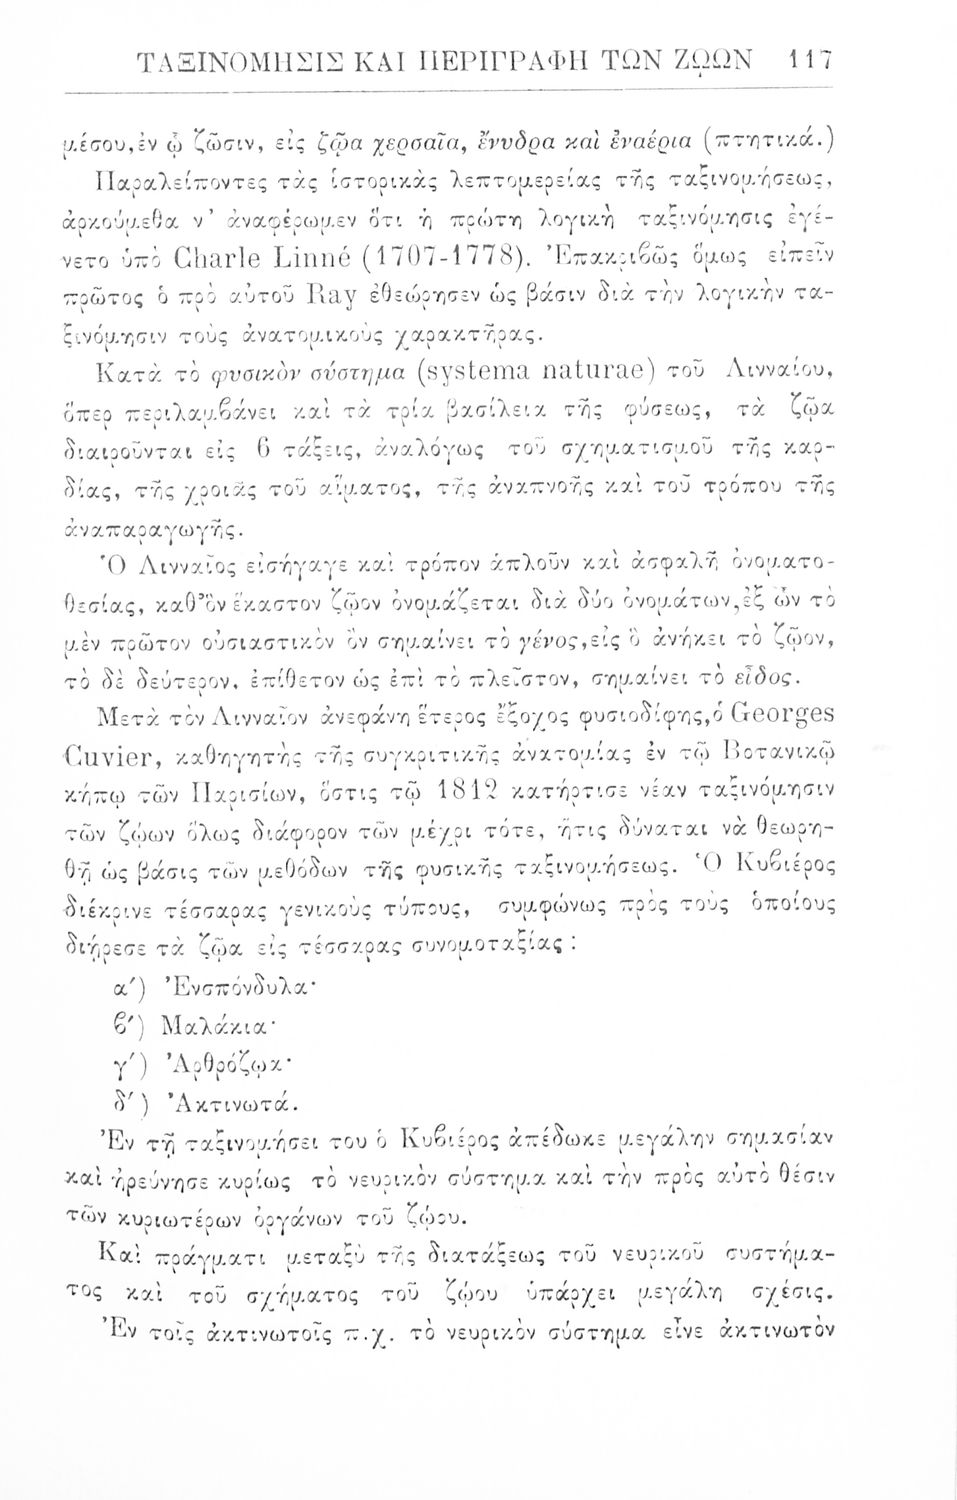 ΤΑΞΙΝΟΜΗΣΙΣ ΚΑΙ ΠΕΡΙΓΡΑΦΗ ΤΩΝ ΖΩΩΝ 117
μέσου,ἐν ᾧ ζῶσιν, εἰς ζῷα χερσαῖα, ἔνυδρα καὶ ἐναέρια (πτητικά.)
Παραλείποντες τὰς ἱστορικὰς λεπτομερείας τῆς ταξινομήσεως,
ἀρκούμεθα ν᾿ ἀναφέρωμεν ὅτι ἡ πρώτη λογικὴ ταξινόμησις ἐγέ-
νετο ὑπὸ Charle Linné (1707-1778). Ἐπακριβῶς ὅμως εἰπεῖν
πρῶτος ὁ πρὸ αὐτοῦ Ray ἐθεώρησεν ὡς βάσιν διὰ τὴν λογικὴν τα-
ξινόμησιν τοὺς ἀνατομικοὺς χαρακτῆρας.
Κατὰ τὸ φυσικὸν σύστημα (systema naturae) τοῦ Λινναίου,
ὅπερ περιλαμβάνει καὶ τὰ τρία βασίλεια τῆς φύσεως, τὰ ζῷα
διαιροῦνται εἰς 6 τάξεις, ἀναλόγως τοῦ σχηματισμοῦ τῆς καρ-
δίας, τῆς χροιᾶς τοῦ αἵματος, τῆς ἀναπνοῆς καὶ τοῦ τρόπου τῆς
ἀναπαραγωγῆς.
Ὁ Λινναῖος εἰσήγαγε καὶ τρόπον ἁπλοῦν καὶ ἀσφαλῆ ὀνοματο-
θεσίας, καθ᾿ὃν ἕκαστον ζῷον ὀνομάζεται διὰ δύο ὀνομάτων,ἐξ ὧν τὸ
μὲν πρῶτον οὐσιαστικὸν ὂν σημαίνει τὸ γένος,εἰς ὃ ἀνήκει τὸ ζῷον,
τὸ δὲ δεύτερον, ἐπίθετον ὡς ἐπὶ τὸ πλεῖστον, σημαίνει τὸ εἶδος.
Μετὰ τὸν Λινναῖον ἀνεφάνη ἕτερος ἔξοχος φυσιοδίφης,ὁ Georges
Cuvier, καθηγητὴς τῆς συγκριτικῆς ἀνατομίας ἐν τῷ Βοτανικῷ
κήπῳ τῶν Παρισίων, ὅστις τῷ 1812 κατήρτισε νέαν ταξινόμησιν
τῶν ζῴων ὅλως διάφορον τῶν μέχρι τότε, ἥτις δύναται νὰ θεωρη-
θῇ ὡς βάσις τῶν μεθόδων τῆς φυσικῆς ταξινομήσεως. Ὁ Κυβιέρος
διέκρινε τέσσαρας γενικοὺς τύπους, συμφώνως πρὸς τοὺς ὁποίους
διῄρεσε τὰ ζῷα εἰς τέσσαρας συνομοταξίας :
α΄) Ἐνσπόνδυλα·
β΄) Μαλάκια·
γ΄) Ἀρθρόζωα·
δ΄) Ἀκτινωτά.
Ἐν τῇ ταξινομήσει του ὁ Κυβιέρος ἀπέδωκε μεγάλην σημασίαν
καὶ ἠρεύνησε κυρίως τὸ νευρικὸν σύστημα καὶ τὴν πρὸς αὐτὸ θέσιν
τῶν κυριωτέρων ὀργάνων τοῦ ζῴου.
Καὶ πράγματι μεταξὺ τῆς διατάξεως τοῦ νευρικοῦ συστήμα-
τος καὶ τοῦ σχήματος τοῦ ζῴου ὑπάρχει μεγάλη σχέσις.
Ἐν τοῖς ἀκτινωτοῖς π.χ. τὸ νευρικὸν σύστημα εἶνε ἀκτινωτὸν